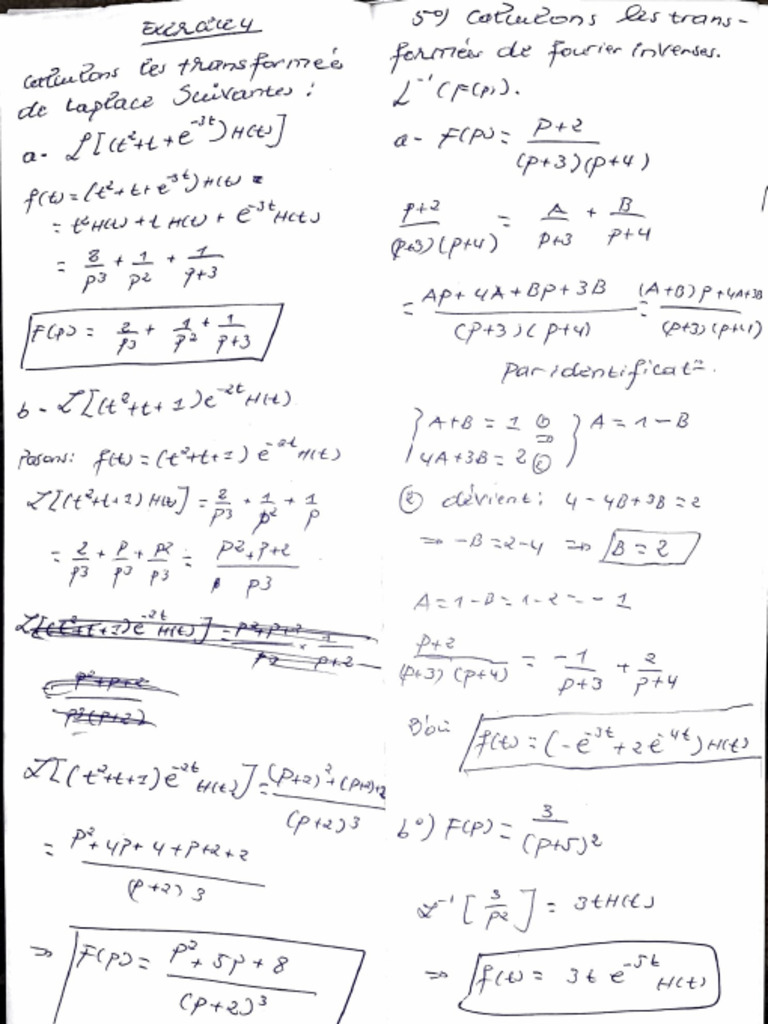 Exercice 4
Calculons les transformées
de Laplace Suivantes :
a- ℒ[(t²+t+e^{-3t})H(t)]
f(t)=(t²+t+e^{-3t})H(t) =
= t²H(t)+t H(t) + e^{-3t}H(t)
= 2/p³ + 1/p² + 1/(p+3)
F(p) = 2/p³ + 1/p² + 1/(p+3)
b- ℒ[(t²+t+1)e^{-2t}H(t)
Posons: f(t)=(t²+t+1) e^{-2t}H(t)
ℒ[(t²+t+1)H(t)] = 2/p³ + 1/p² + 1/p
= 2/p³ + p/p³ + p²/p³ = (p²+p+2)/p³
ℒ[(t²+t+1)e^{-2t}H(t)] = (p²+p+2)/p³ × 1/(p+2)
(p²+p+2)/(p³(p+2))
ℒ[(t²+t+1)e^{-2t}H(t)] = ((p+2)²+(p+2)+2)/(p+2)³
= (p²+4p+4+p+2+2)/(p+2)³
⇒ F(p) = (p²+5p+8)/(p+2)³
5°) Calculons les trans-
formées de fourier inverses.
ℒ⁻¹(F(p)).
a- F(p) = (p+2)/((p+3)(p+4))
(p+2)/((p+3)(p+4)) = A/(p+3) + B/(p+4)
= (Ap+4A+Bp+3B)/((p+3)(p+4)) = ((A+B)p+4A+3B)/((p+3)(p+4))
par identificat°.
{A+B = 1 ① ⇒ } A = 1-B
{4A+3B = 2 ②
② dévient: 4-4B+3B = 2
⇒ -B = 2-4 ⇒ B = 2
A = 1-B = 1-2 = -1
(p+2)/((p+3)(p+4)) = -1/(p+3) + 2/(p+4)
D'où f(t) = (-e^{-3t}+2e^{-4t})H(t)
b°) F(p) = 3/(p+5)²
ℒ⁻¹[3/p²] = 3tH(t)
⇒ f(t) = 3t e^{-5t}H(t)